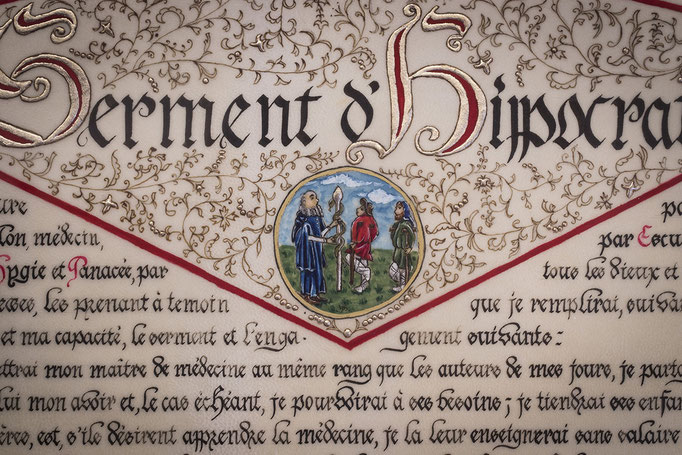 Serment d'Hippocra
ure po
llon, médecin, par Escu
Hygie et Panacée, par tous les dieux et
esses, les prenant à témoin que je remplirai, suiva
et ma capacité, le serment et l'enga- gement suivants :
ettrai mon maître de médecine au même rang que les auteurs de mes jours, je parta
lui mon avoir et, le cas échéant, je pourvoirai à ses besoins ; je tiendrai ses enfan
ères, et, s'ils désirent apprendre la médecine, je la leur enseignerai sans salaire